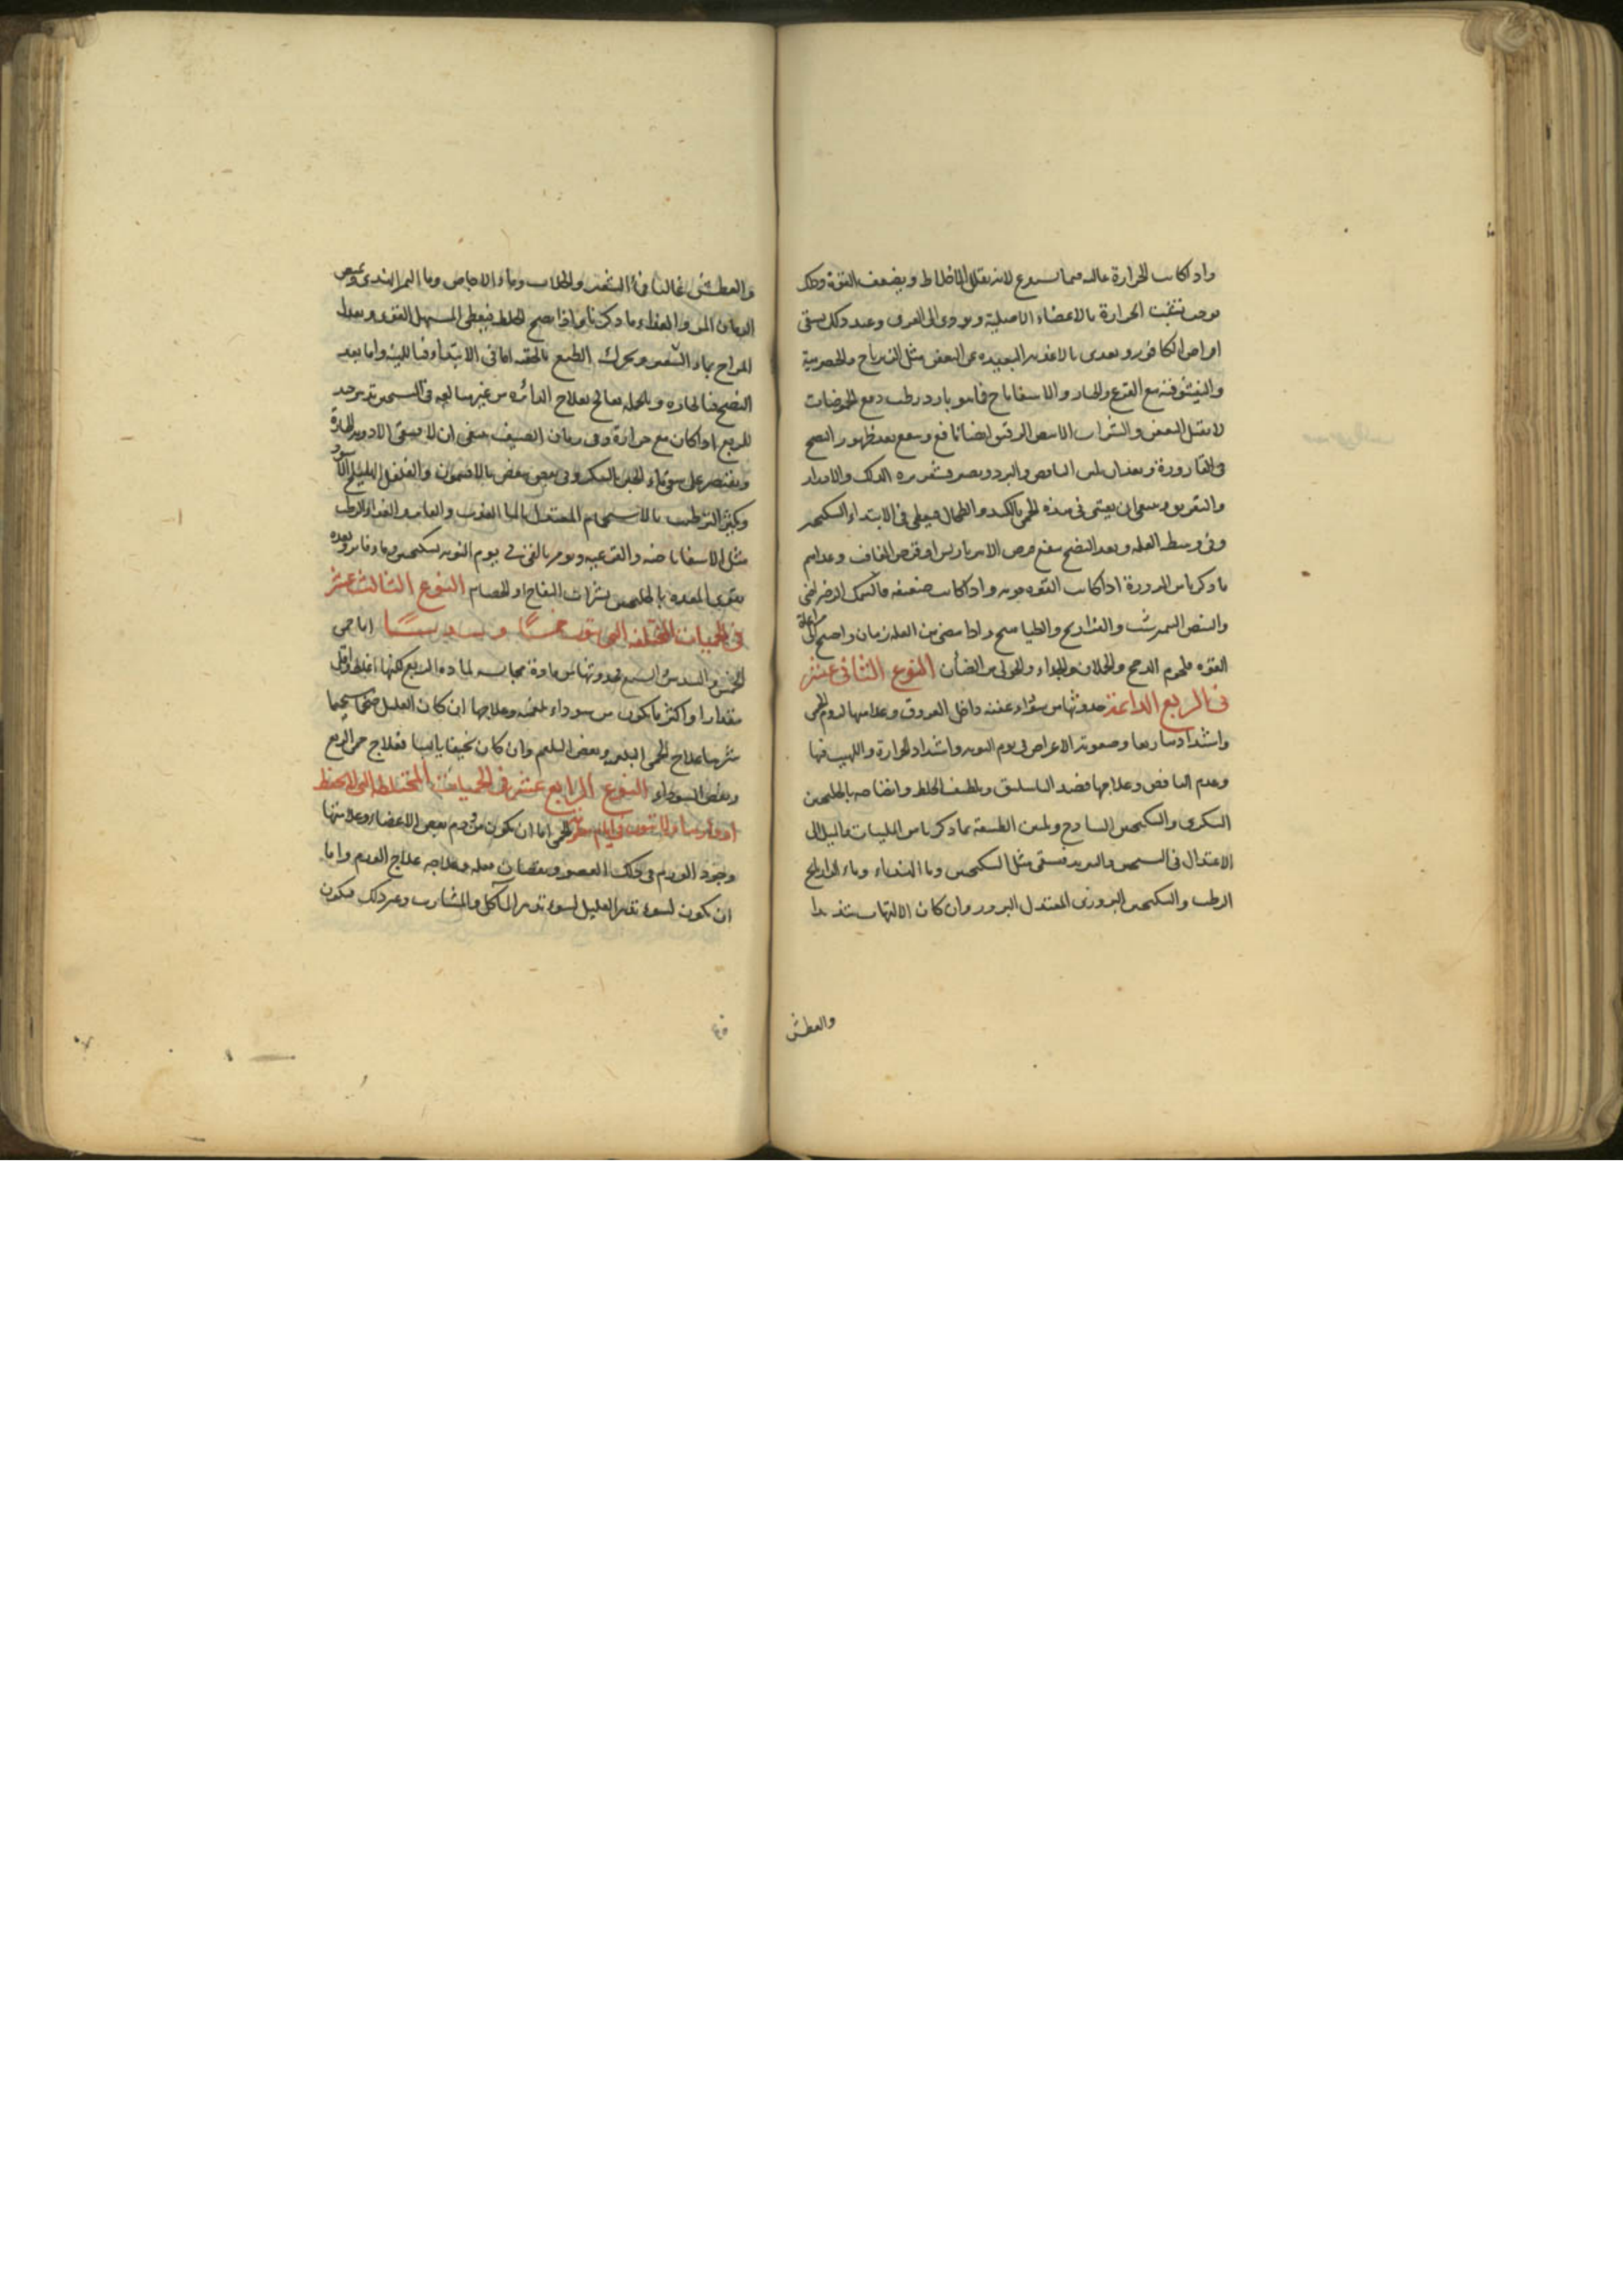 واذا كانت الحرارة غالبة فما يسوغ لانه يقلل الاخلاط ويضعف القوة وذلك
يوجب تشبث الحرارة بالاعضاء الاصلية ويودى الى الدق وعند ذلك يسقى
اقراص الكافور ويغذى بالاغذية البعيدة عن التعفن مثل الزيرباج والحصرمية
والنيشوقية مع القرع والخيار والاسفاناخ فانه بارد رطب دمع الحموضات
لا يقبل التعفن والشراب الابيض الرقيق ايضا نافع وينفع بعد ظهور النضج
فى القارورة وبعد ان يلين النافض والبرد ويصير قشعريرة الدلك والادرار
والتعريق وينبغى ان يعتنى فى هذه الحمى بالكبد والطحال فيعطى فى الابتداء السكنجبين
وفى وسط العلة وبعد النضج ينفع قرص الامبرباريس او قرص الغافث وغذاهم
ما ذكرنا من المزورة اذا كانت القوة قوية واذا كانت ضعيفة فالسمك الرضراضى
والبيض النيمرشت والفراريج والطياهيج واذا مضى من العلة زمان واحتيج الى مراعاة
القوة فلحوم الدجاج والحملان والجداء والحولى من الضأن النوع الثانى عشر
فى الربع الدائمة حدوثها من سوداء عفنة داخل العروق وعلامتها لزوم الحمى
واشتدادها ربعا وصعوبة الاعراض فى يوم النوبة واشتداد الحرارة واللهيب فيها
وعدم النافض وعلاجها فصد الباسليق وتلطيف الخلط وانضاجه بالجلنجبين
السكرى والسكنجبين الساذج وتليين الطبيعة بما ذكرنا من الملينات مايلا الى
الاعتدال فى التسخين والتبريد فيسقى مثل السكنجبين وما الهندباء وماء الرازيانج
الرطب والسكنجبين البزورى المعتدل البزور وان كان الالتهاب شديدا
والعطش
والعطش غالبا فماء الشعير والجلاب وماء الاجاص وما التمر الهندى وبعض
الرمان المز والغذاء ما ذكرنا واذا نضج الخلط فيعطى المسهل القوى ويعدل
المزاج بماء الشعير ويحرك الطبع بالحقنة اما فى الابتداء فباللينة واما بعد
النضج فبالحادة وبالجملة يعالج بعلاج الدائرة من غير مبالغة فى التسخين تدبير جيد
للربع اذا كان مع حرارة وفى زمان الصيف ينبغى ان لا يسقى الادوية الحارة
ويقتصر على سقى ماء الجبن بالسكر وفى بعض بعض بالافتيمون والهليلج الاسود
ويكثر الترطيب بالاستحمام المعتدل بالماء العذب والغذاء الرطب
مثل الاسفاناخية والقرعية ويومر بالقى فى يوم النوبة بسكنجبين وماء فاتر وبعده
يقوى المعدة بالجلنجبين بشراب التفاح او الحصرم النوع الثالث عشر
فى الحميات المختلفة التى تنوب خمسا وسدسا وسبعا اما حمى
الخمس والسدس والسبع فحدوثها من مادة مجانسة لمادة الربع لكنها اغلظ واقل
مقدارا واكثر ما يكون من سوداء بلغمية وعلاجها ان كان العليل ضخما سحيما
شربها علاج الحمى البلغمية ونفض البلغم وان كان نحيفا يابسا فعلاج حمى الربع
ونفض السوداء النوع الرابع عشر فى الحميات المختلطة التى لا يحفظ
ادوارها ولا تنوب فى ايام معلومة الحمى اما ان يكون من ورم بعض الاعضاء وعلامتها
وجود الورم فى ذلك العضو ونقصان فعله وعلاجه علاج الورم واما
ان يكون لسوء تدبير العليل لسوء تدبير المآكل والمشارب وغير ذلك فيكون